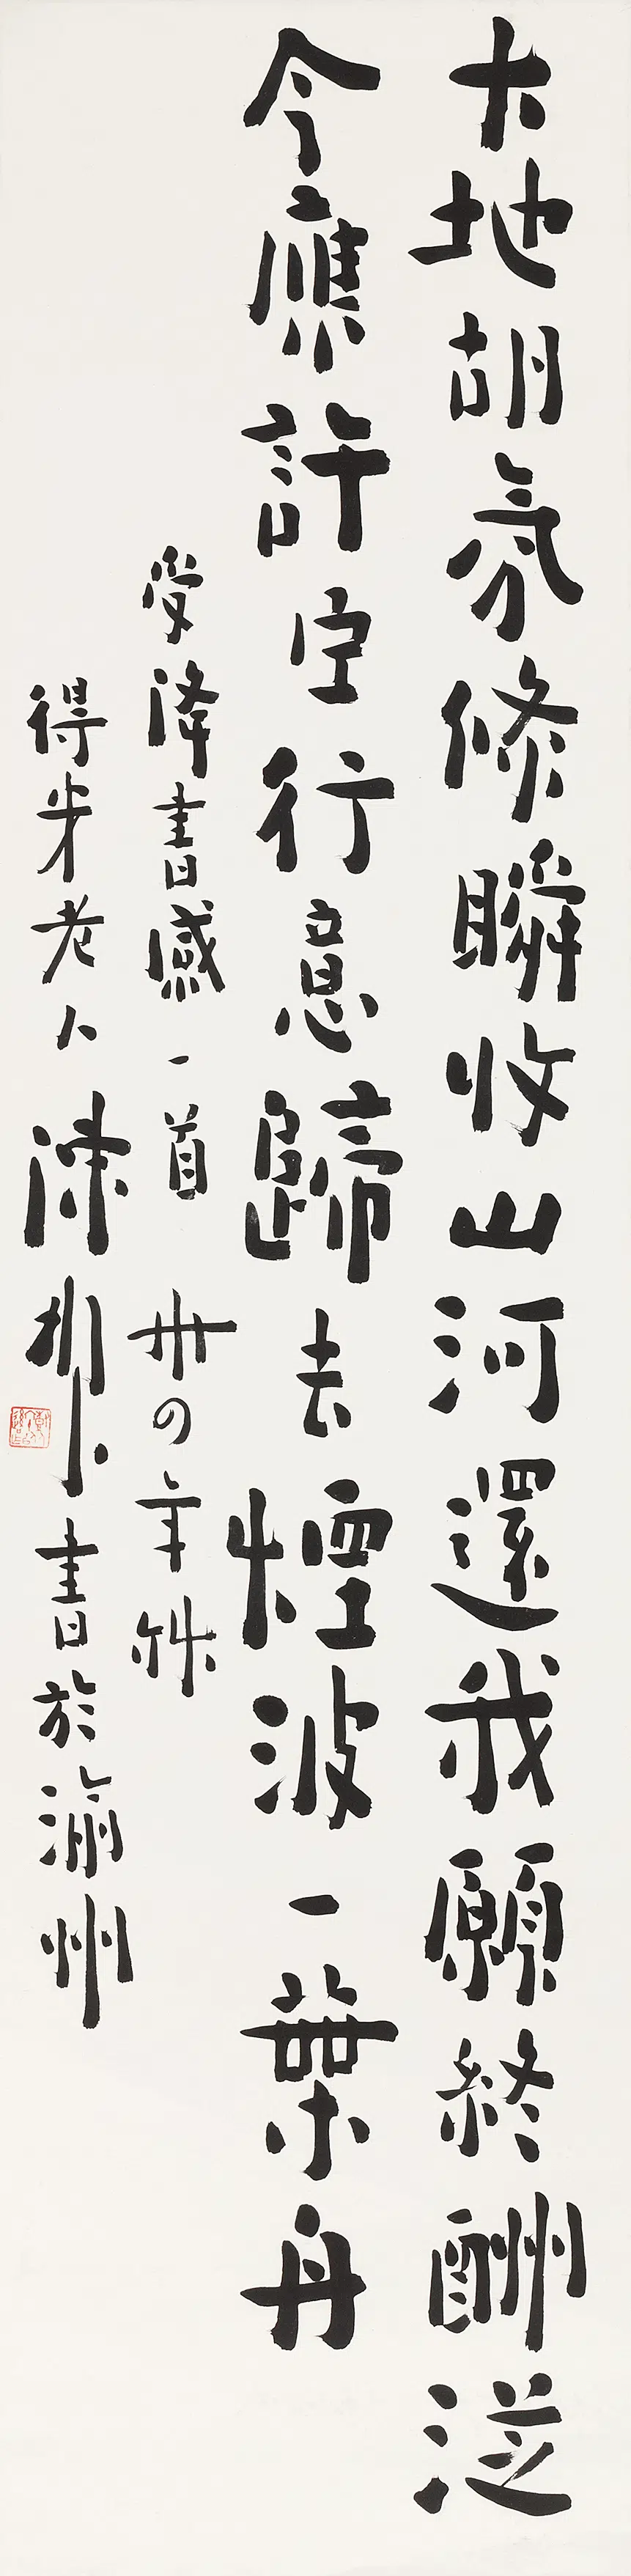 大地胡氛倏瞬收山河還我願終酬從
今應許定行意歸去煙波一葉舟
受降書感一首 卅四年秋
得半老人 陳 書於渝州